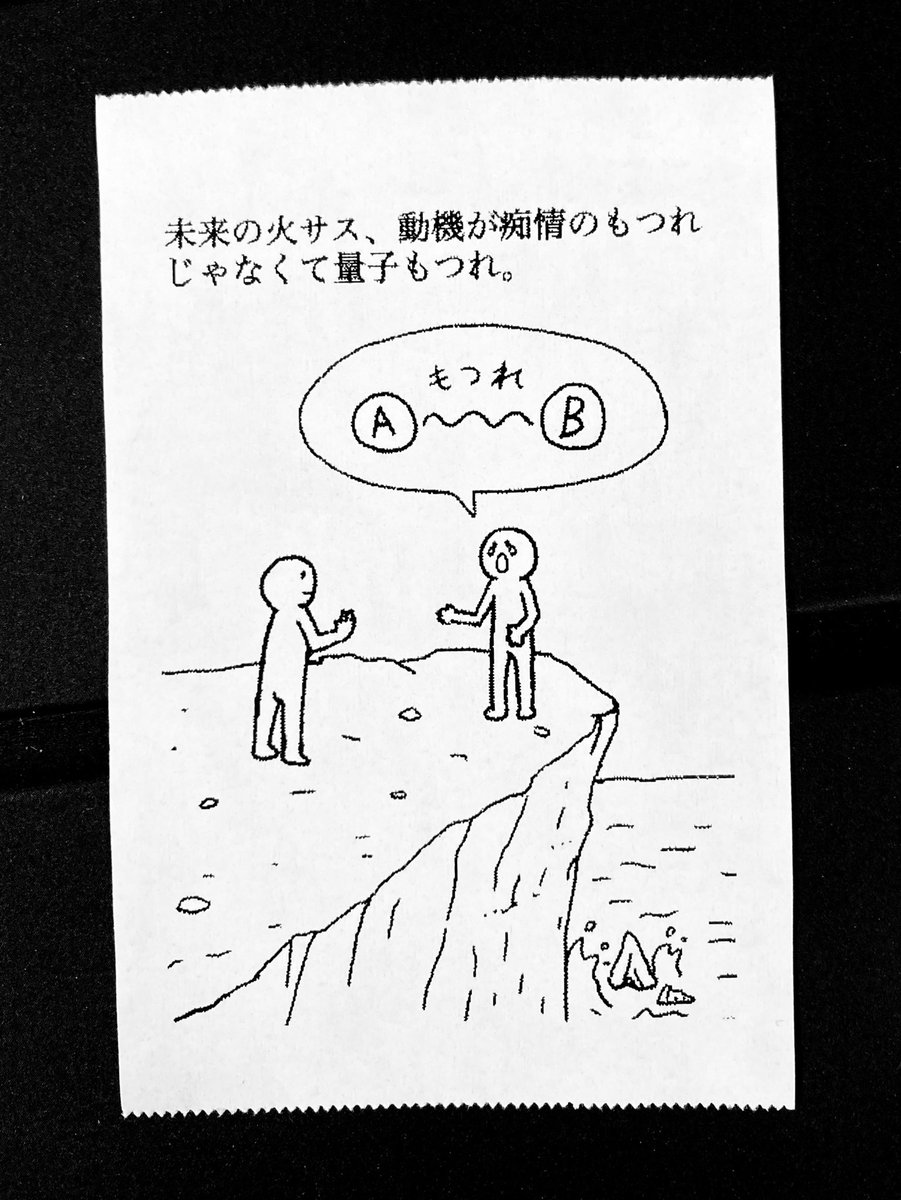 未来の火サス、動機が痴情のもつれ
じゃなくて量子もつれ。
もつれ
A B